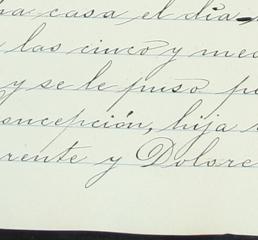 casa el día
las cinco y med
y se le puso po
oncepción, hija
rente y Dolore